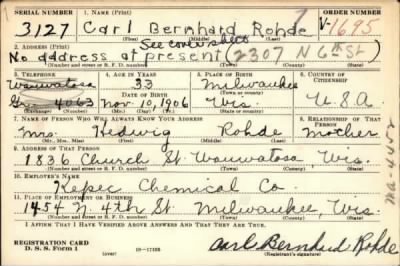 SERIAL NUMBER 1. NAME (Print) ORDER NUMBER
3127 Carl Bernhard Rohde V-1695
(First) (Middle) (Last)
2. ADDRESS (Print) See cover sheet
No address at present (2307 N 6th St)
(Number and street or R. F. D. number) (Town) (County) (State)
3. TELEPHONE 4. AGE IN YEARS 5. PLACE OF BIRTH 6. COUNTRY OF CITIZENSHIP
Wauwatosa 33 Milwaukee
DATE OF BIRTH (Town or county)
4063 Nov. 10, 1906 Wis U.S.A
(Exchange) (Number) (Mo.) (Day) (Yr.) (State or country)
7. NAME OF PERSON WHO WILL ALWAYS KNOW YOUR ADDRESS 8. RELATIONSHIP OF THAT PERSON
Mrs. Hedwig Rohde Mother
(Mr., Mrs., Miss) (First) (Middle) (Last)
9. ADDRESS OF THAT PERSON
1836 Church St. Wauwatosa, Wis.
(Number and street or R. F. D. number) (Town) (County) (State)
10. EMPLOYER'S NAME
Kepec Chemical Co.
11. PLACE OF EMPLOYMENT OR BUSINESS
1454 N. 4th St. Milwaukee, Wis.
(Number and street or R. F. D. number) (Town) (County) (State)
I AFFIRM THAT I HAVE VERIFIED ABOVE ANSWERS AND THAT THEY ARE TRUE.
REGISTRATION CARD
D. S. S. Form 1 (over) Carl Bernhard Rohde
(Registrant's signature)